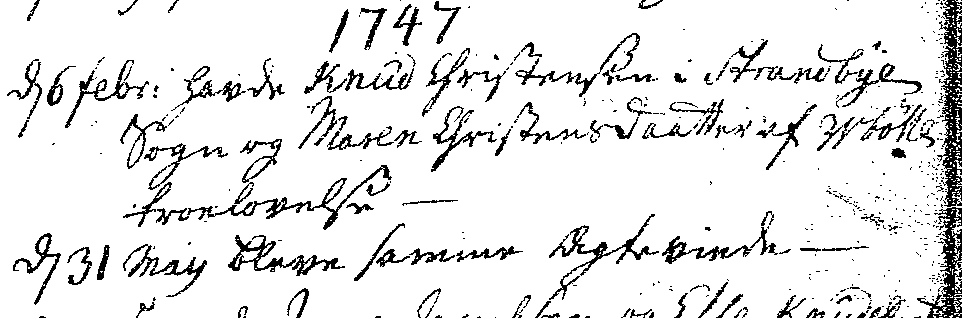 1747
d 6 febr: havde Knud Christensen i Strandbye
Sogn og Maren Christensdaatter af
troelovelse —
d 31 May bleve samme Ægteviede —
og Else Knuds